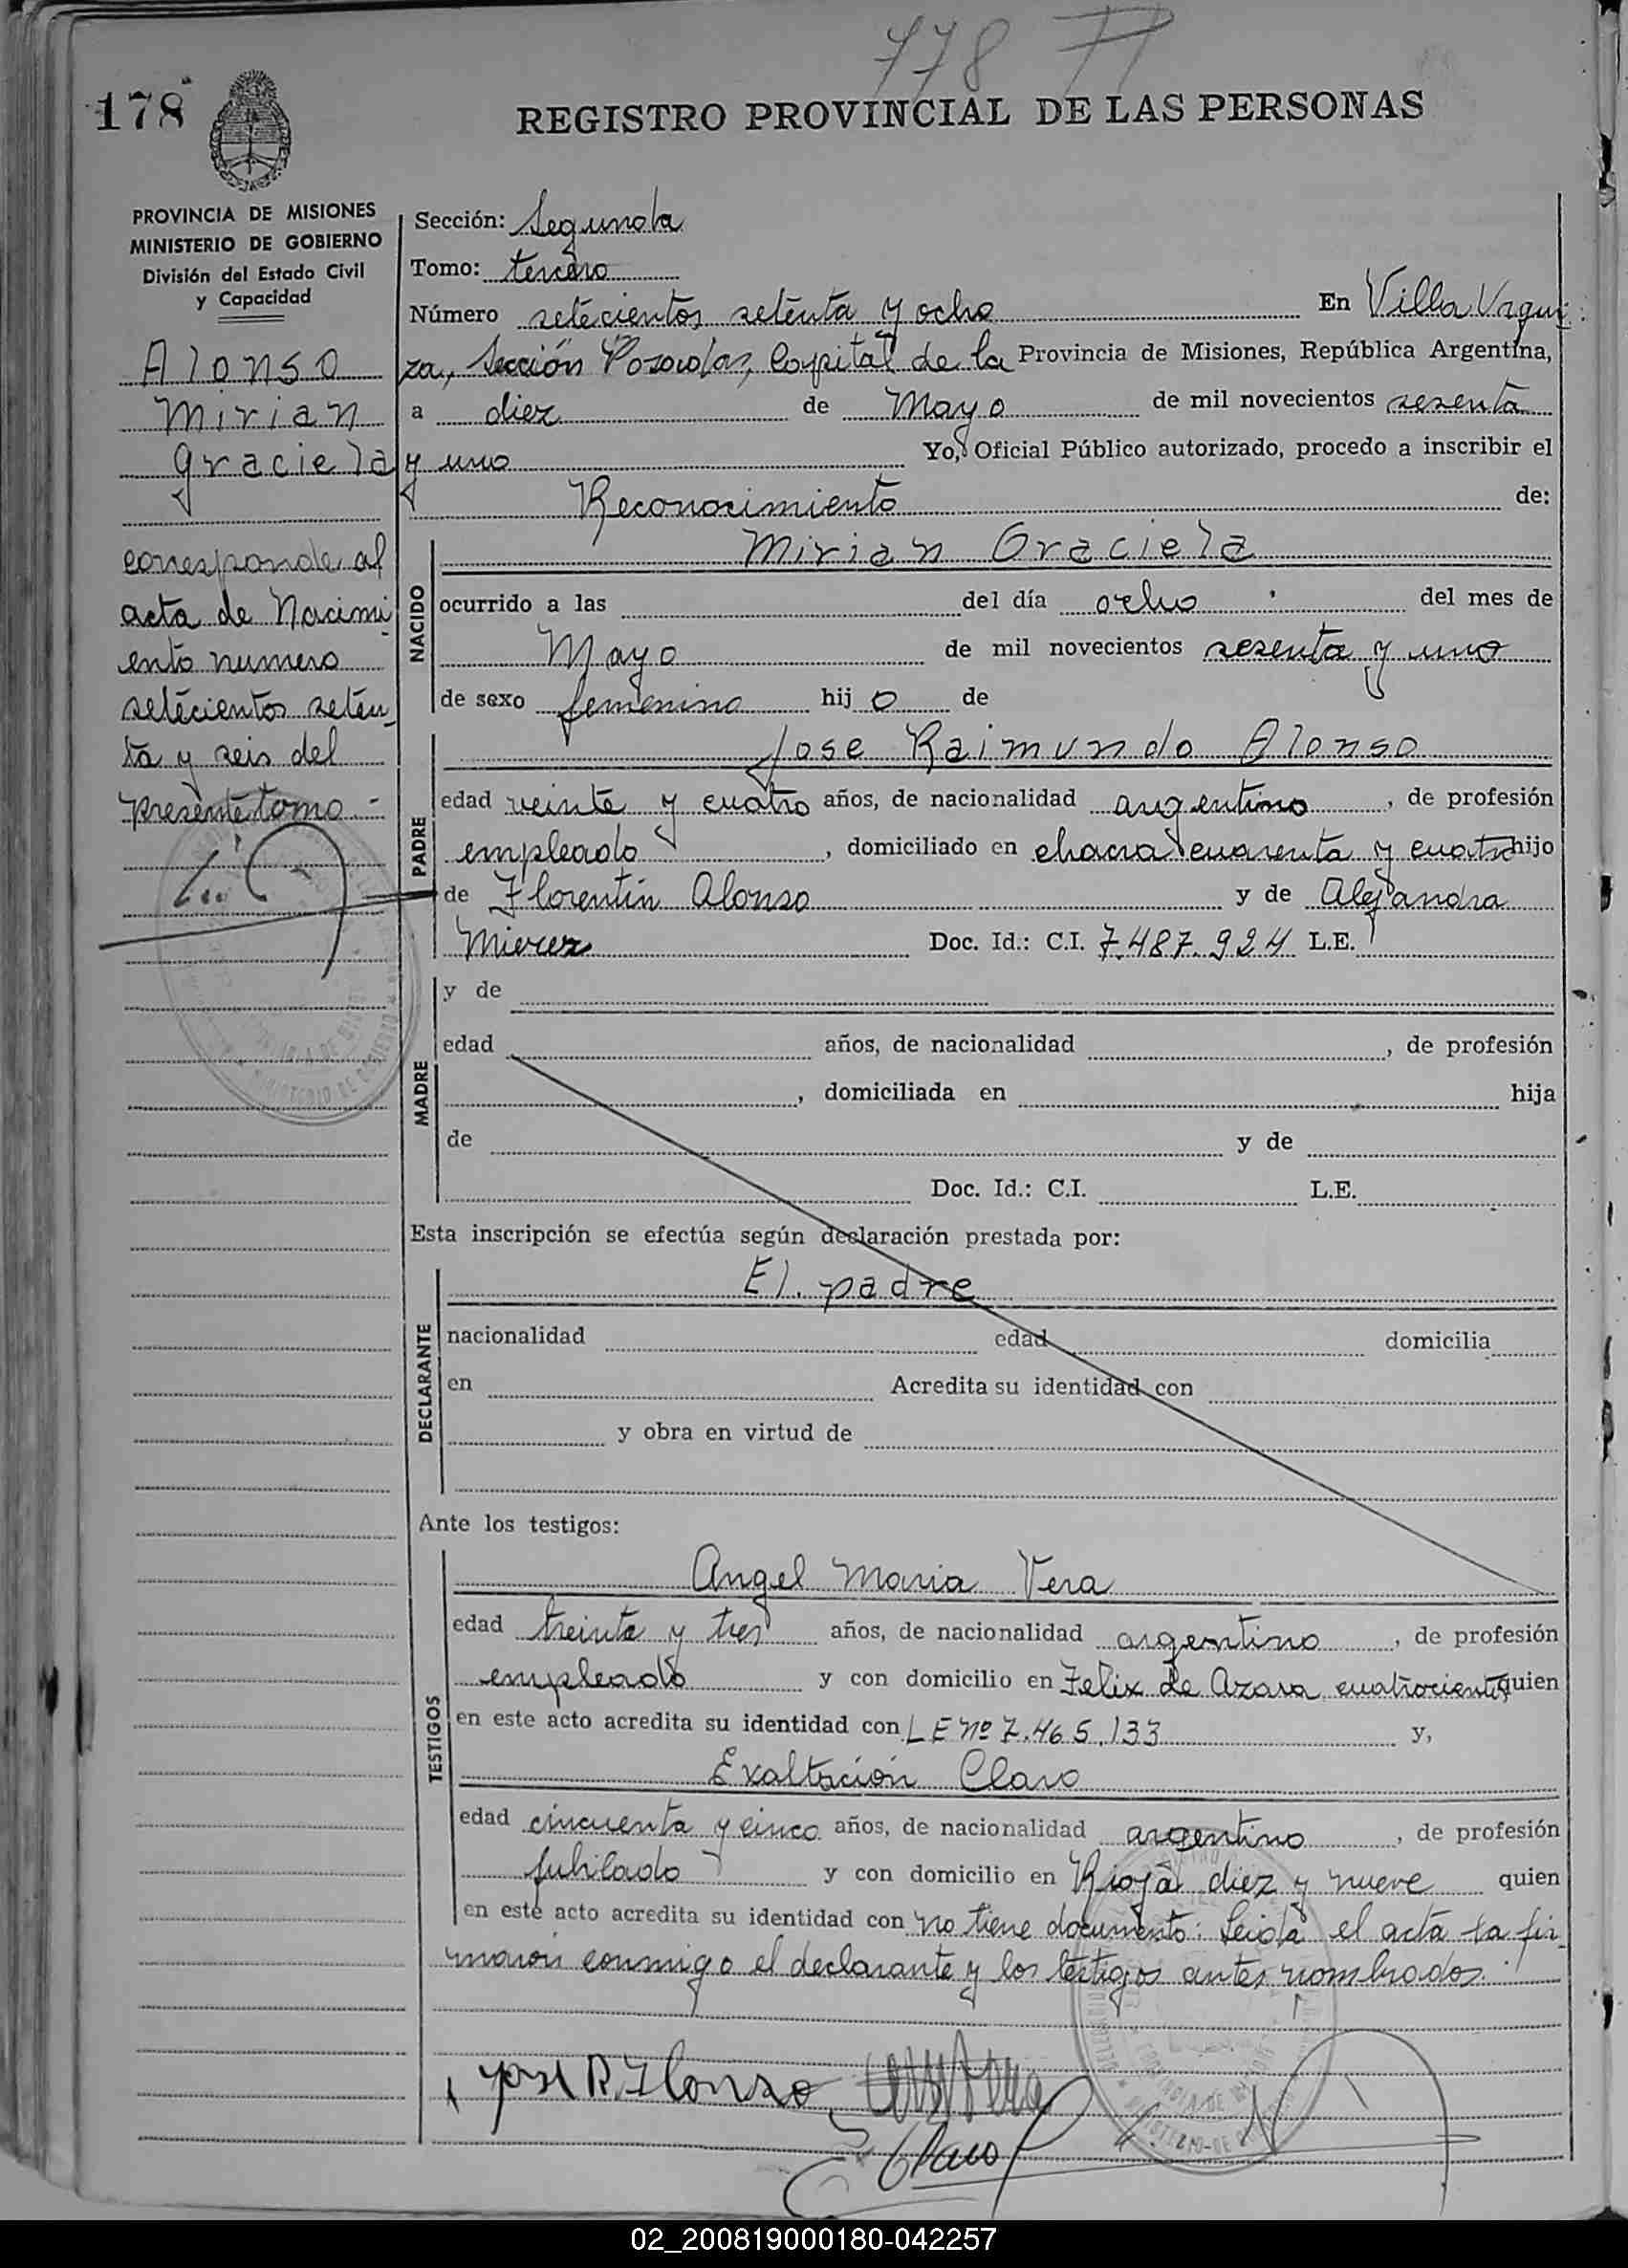 778
178
REGISTRO PROVINCIAL DE LAS PERSONAS
PROVINCIA DE MISIONES
MINISTERIO DE GOBIERNO
División del Estado Civil
y Capacidad
Alonso
Mirian
Graciela
corresponde al
acta de Nacimi
ento numero
setecientos seten
ta y seis del
presente tomo.-
Sección: Segunda
Tomo: tercero
Número setecientos setenta y ocho En Villa Urqui
za, Sección Posadas, Capital de la Provincia de Misiones, República Argentina,
a diez de Mayo de mil novecientos sesenta
y uno Yo, Oficial Público autorizado, procedo a inscribir el
Reconocimiento de:
NACIDO
Mirian Graciela
ocurrido a las del día ocho del mes de
Mayo de mil novecientos sesenta y uno
de sexo femenino hij o de
PADRE
Jose Raimundo Alonso
edad veinte y cuatro años, de nacionalidad argentino, de profesión
empleado, domiciliado en chacra cuarenta y cuatro hijo
de Florentin Alonso y de Alejandra
Doc. Id.: C.I. 7.487.924 L.E.
MADRE
y de
edad años, de nacionalidad , de profesión
, domiciliada en hija
de y de
Doc. Id.: C.I. L.E.
Esta inscripción se efectúa según declaración prestada por:
DECLARANTE
El padre
nacionalidad edad domicilia
en Acredita su identidad con
y obra en virtud de
Ante los testigos:
TESTIGOS
Angel Maria Vera
edad treinta y tres años, de nacionalidad argentino, de profesión
empleado y con domicilio en Felix de Azara cuatrocientos quien
en este acto acredita su identidad con L E Nº 7.465.133 y,
Exaltación Claro
edad cincuenta y cinco años, de nacionalidad argentino, de profesión
Jubilado y con domicilio en Rioja diez y nueve quien
en este acto acredita su identidad con no tiene documento: Leida el acta la fir
maron conmigo el declarante y los testigos antes nombrados.
Jose R. Alonso
Claro
02_200819000180-042257